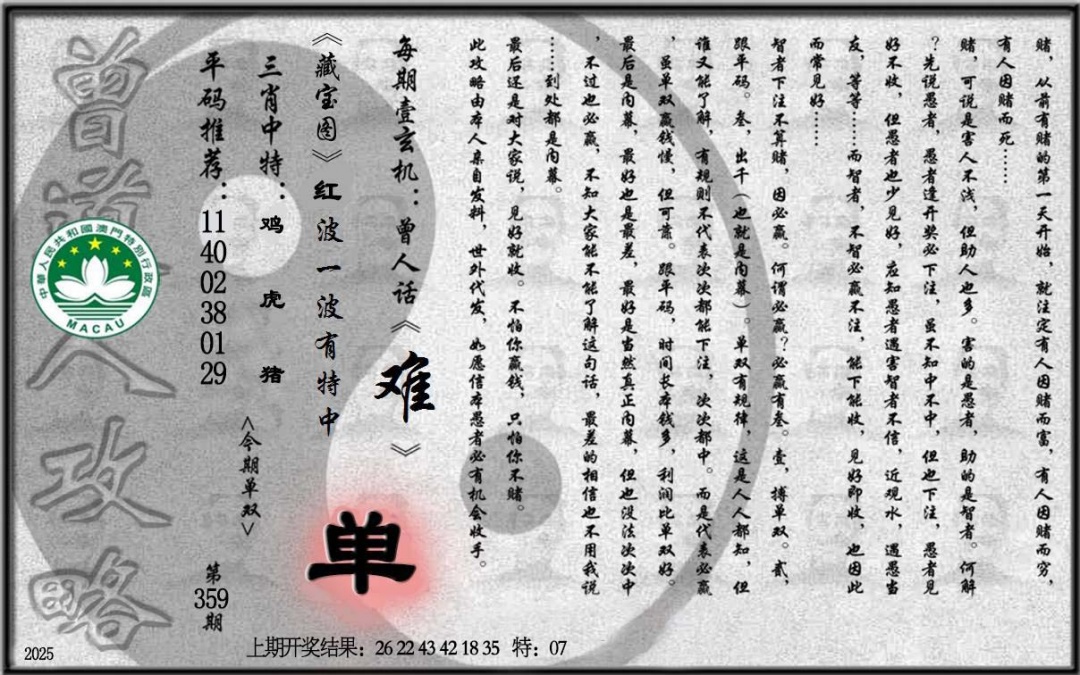 赌，从前有赌的第一天开始，就注定有人因赌而富，有人因赌而穷，
有人因赌而死……
赌，可说是害人不浅，但助人也多。害的是愚者，助的是智者。何解
？先说愚者，愚者逢开奖必下注，虽不知中不中，但也下注，愚者见
好不收，但愚者也少见好，应知愚者遇害智者不信，近观水，遇愚当
友，等等……而智者，不智必赢不注，能下能收，见好即收，也因此
而常见好……
智者下注不算赌，因必赢。何谓必赢？必赢有叁。壹，搏单双。贰，
跟平码。叁，出千（也就是内幕）。单双有规律，这是人人都知，但
谁又能了解，有规则不代表次次都能下注，次次都中。而是代表必赢
，虽单双赢钱慢，但可靠。跟平码，时间长本钱多，利润比单双好。
最后是内幕，最好也是最差，最好是当然真正内幕，但也没法次次中
，不过也必赢，不知大家能不能了解这句话，最差的相信也不用我说
……到处都是内幕。
最后还是对大家说，见好就收。不怕你赢钱，只怕你不赌。
此攻略由本人亲自发料，世外代发，如愿信本愚者必有机会收手。
每期壹玄机：曾人话《难》
《藏宝图》红波一波有特中
单
三肖中特：鸡 虎 猪
<今期单双>
平码推荐：11 40 02 38 01 29
第359期
曾道人攻略
中華人民共和國澳門特別行政區
MACAU
2025
上期开奖结果：26 22 43 42 18 35 特：07